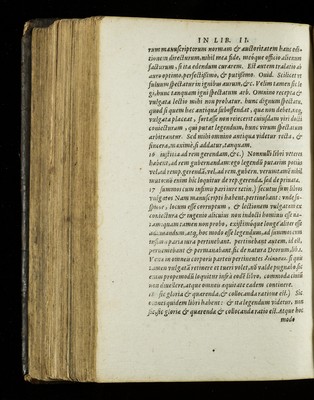 IN LIB. II.
rum manuscriptorum normam & auctoritatem hanc edi-
tionem directurum, nihil mea fide, meoque officio alienum
facturum, si ita edendum curarem. Est autem tralatio ab
auro optimo, perfectißimo, & putißimo. Ouid. Scilicet ut
fuluum spectatur in ignibus aurum, &c. Velim tamen sic le
gi, hunc tanquam igni spectatum arb. Omnino recepta &
vulgata lectio mihi non probatur, hunc dignum spectatu,
quod si quem hec antiqua subostendat, qua non debet, &
vulgata placeat, fortasse non reiecerit cuiusdam viri docti
coniecturam, qui putat legendum, hunc virum spectatum
arbitrantur. Sed mihi omnino antiqua videtur recta, &
sincera, maximè, si addatur, tanquam.
16 iustitia ad rem gerendam, &c.) Nonnulli libri veteres
habent, ad rem gubernandam: ego legendū putarim potius
vel ad remp. gerendā, vel, ad rem gubern. veruntamē nihil
muto: nā enim hic loquitur de rep. gerenda, sed de priuata.
17 summos cum infimis pari iure retin.) secutus sum libros
vulgatos Nam manuscripti habent, pertinebant: vnde su-
spicor, locum esse corruptum, & lectionem vulgatam ex
coniectura & ingenio alicuius non indocti hominis esse na-
tam: quam tamen non probo, existimoque longè aliter esse
emendandum, atq. hoc modo esse legendum, ad summos cum
infimis paria iura pertinebant. pertinebant autem, id est,
perueniebant & permanabant. sic de natura Deorum lib. 2.
Vt ea in omneis corporis parteis pertinentes
tamen vulgatā retinere et tueri volet, nō valde pugnabo: sic
enim propemodū loquitur infra eodē libro, commoda ciuiū
non diuellere, atque omneis equitate eadem continere.
18 sic gloria & quærenda, & collocanda ratione est.) Sic
manuscripti quidem libri habent: & ita legendum videtur, non
sic, gloria & quærenda & collocanda ratio est. Atque hoc
modo